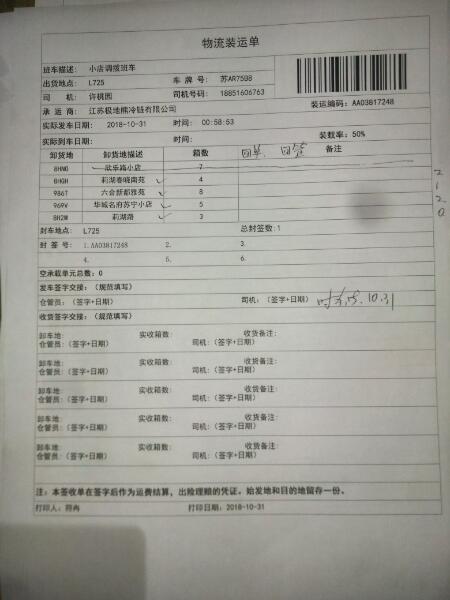 物流装运单
班车描述: 小店调拨班车
出货地点: L725 车牌号: 苏AR75B8
司机: 许桃园 司机号码: 18851606763
承运商: 江苏极地熊冷链有限公司 装运编码: AA03817248
实际发车日期: 2018-10-31 时间: 00:58:53
实际到车日期: 时间: 装载率: 50%
卸货地 卸货地描述 箱数 回单 回签 备注
8HW0 欣乐路小店 7
8HGH 莉湖春晓南苑 4
986T 六合新都雅苑 8
969V 华城名府苏宁小店 5
8H2W 莉湖路 3
2
1
2
0
封车地点: L725 总封签数:1
封签号: 1.AA03817248 2. 3.
4. 5. 6.
空承载单元总数: 0
发车签字交接: (规范填写)
仓管员: (签字+日期) 司机: (签字+日期) 10.31
收货签字交接: (规范填写)
卸车地: 实收箱数: 收货备注:
仓管员: (签字+日期) 司机: (签字+日期)
卸车地: 实收箱数: 收货备注:
仓管员: (签字+日期) 司机: (签字+日期)
卸车地: 实收箱数: 收货备注:
仓管员: (签字+日期) 司机: (签字+日期)
卸车地: 实收箱数: 收货备注:
仓管员: (签字+日期) 司机: (签字+日期)
卸车地: 实收箱数: 收货备注:
仓管员: (签字+日期) 司机: (签字+日期)
注: 本签收单在签字后作为运费结算, 出险理赔的凭证。始发地和目的地留存一份。
打印人: 符冉 打印日期: 2018-10-31